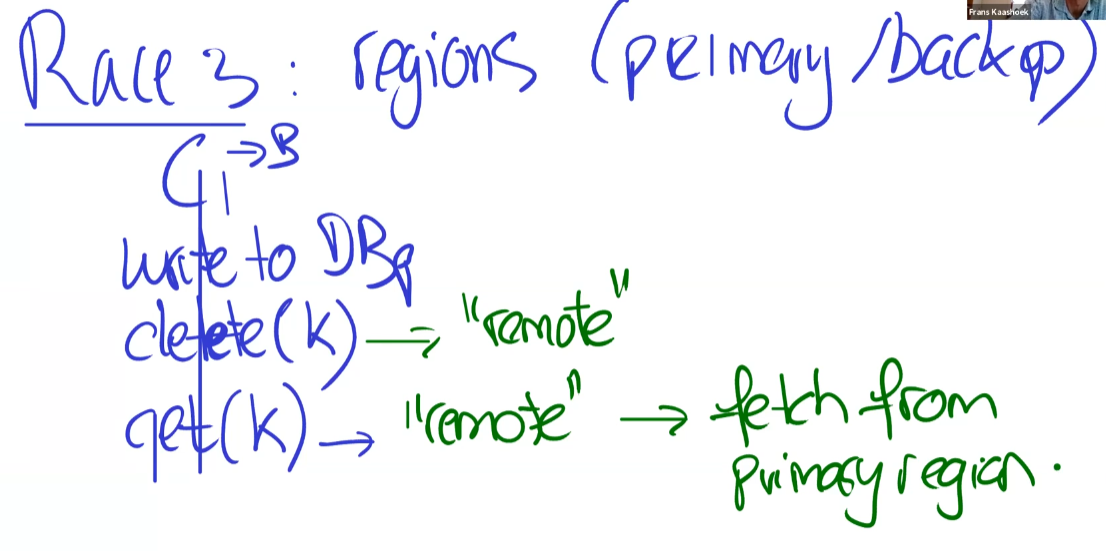 Frans Kaashoek
Race 3: regions (primary/backup)
C1 → B
write to DBp
delete(k) → "remote"
get(k) → "remote" → fetch from
primary region.